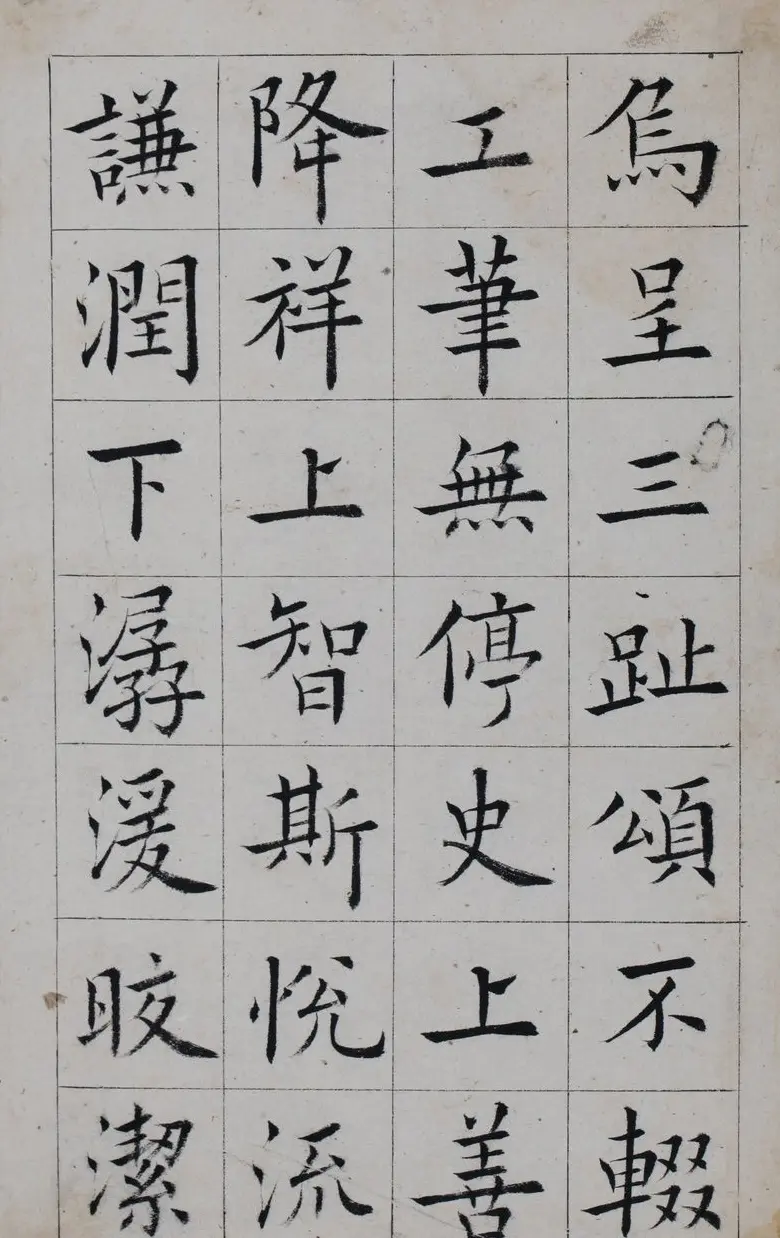 烏呈三趾頌不輟
工筆無停史上善
降祥上智斯悅流
謙潤下潺湲皎潔